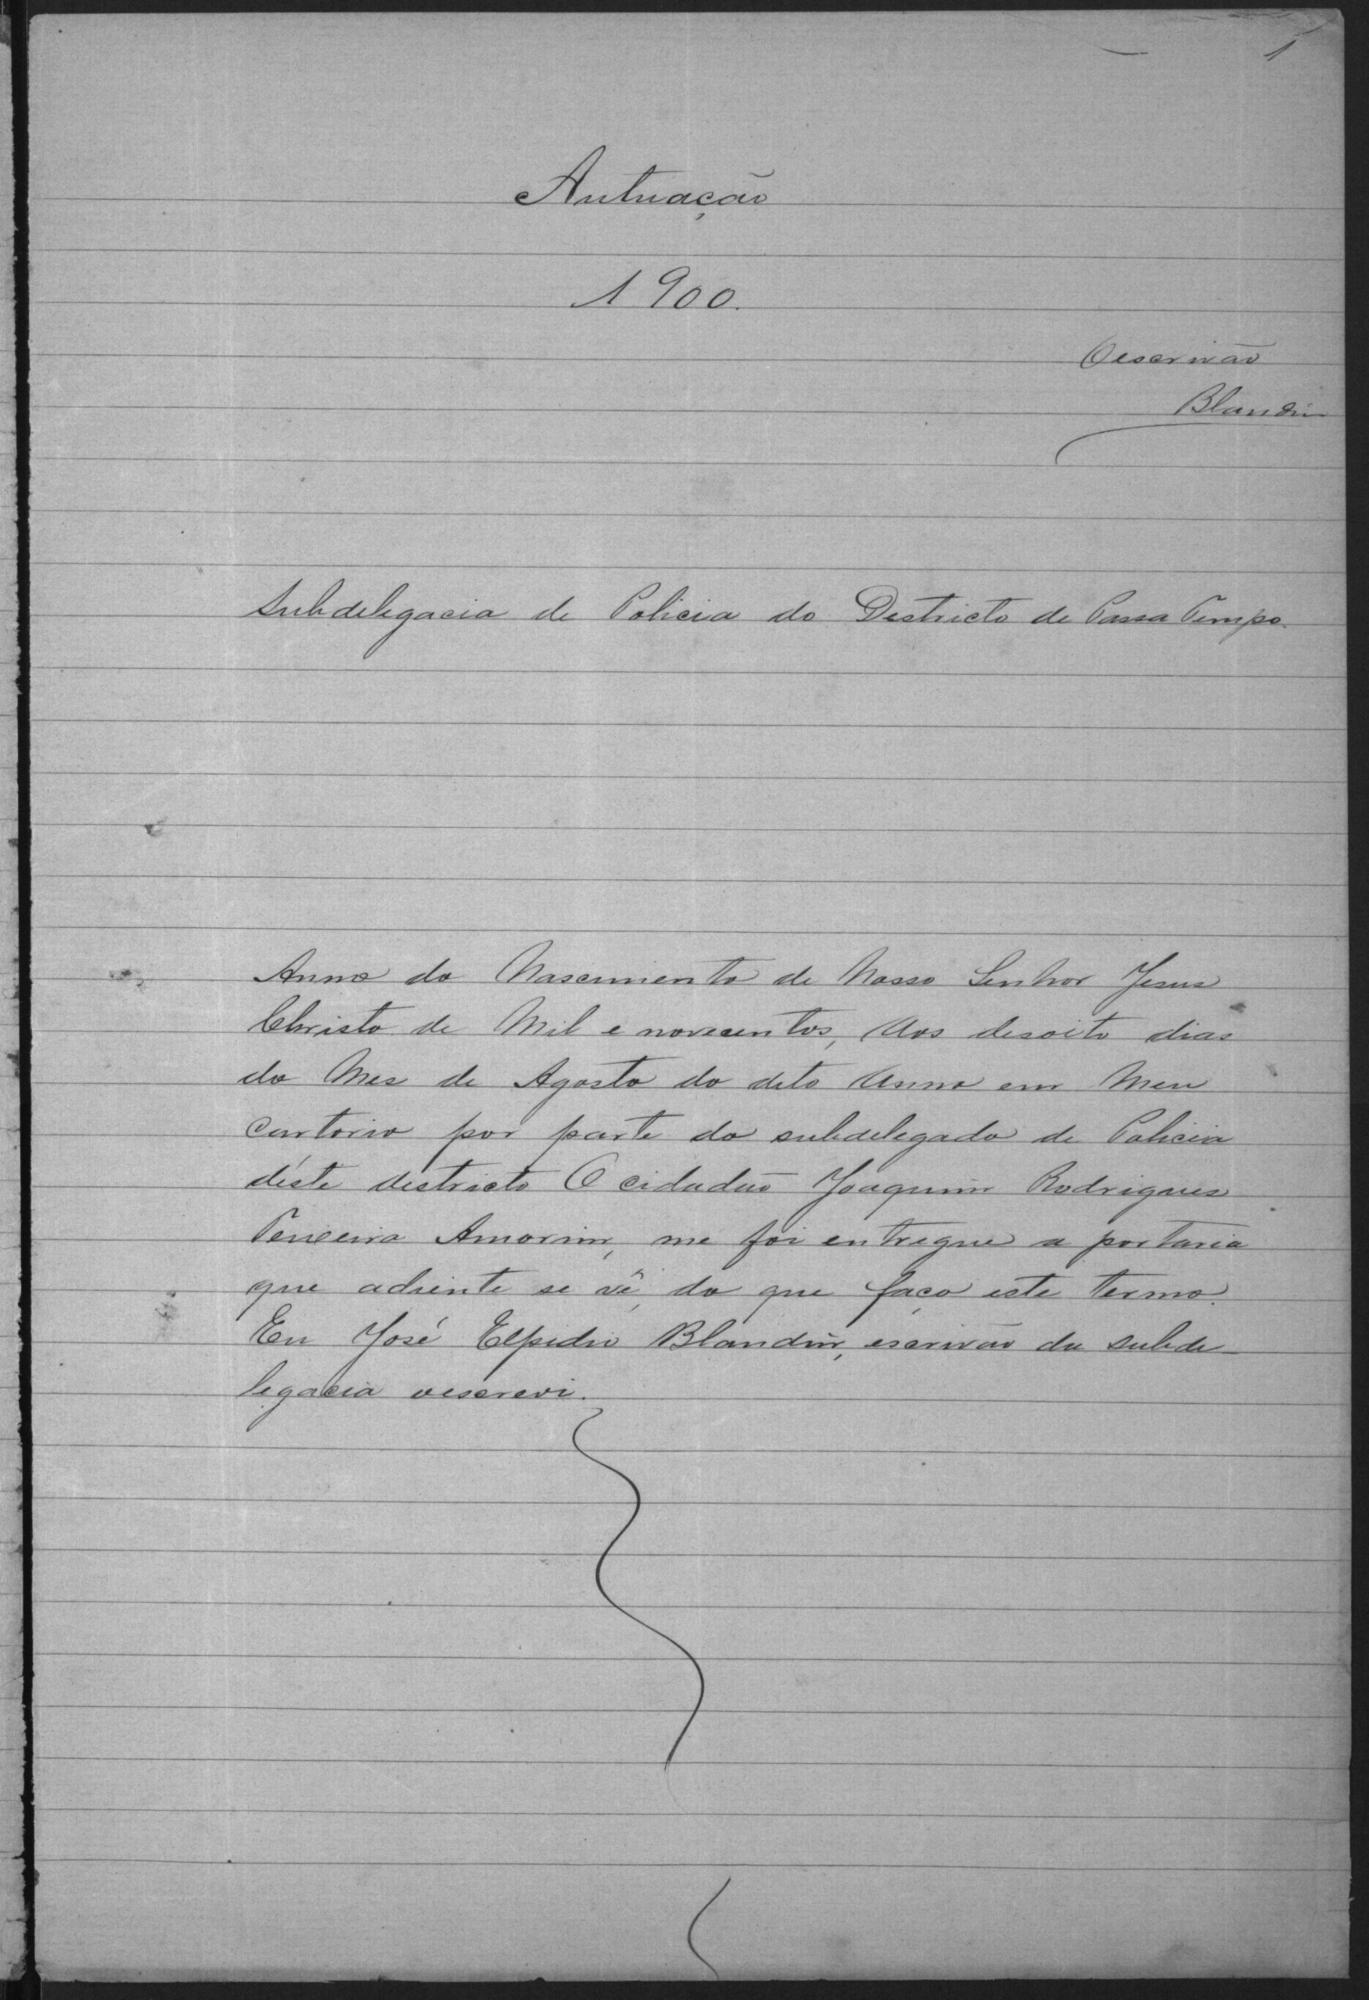 1
Autuação
1900.
O escrivão
Blandin
Subdelegacia de Policia do Districto de Passa Tempo.
Anno do Nascimento de Nosso Senhor Jesus
Christo de Mil e novecentos, Aos desoito dias
do Mes de Agosto do dito Anno em Meu
Cartorio por parte do subdelegado de Policia
déste districto O cidadão Joaquim Rodrigues
Teixeira Amorim, me foi entregue a portaria
que adiente se vê, do que faço este termo.
Eu José Elpidio Blandin, escrivão da subde-
legacia o escrevi.